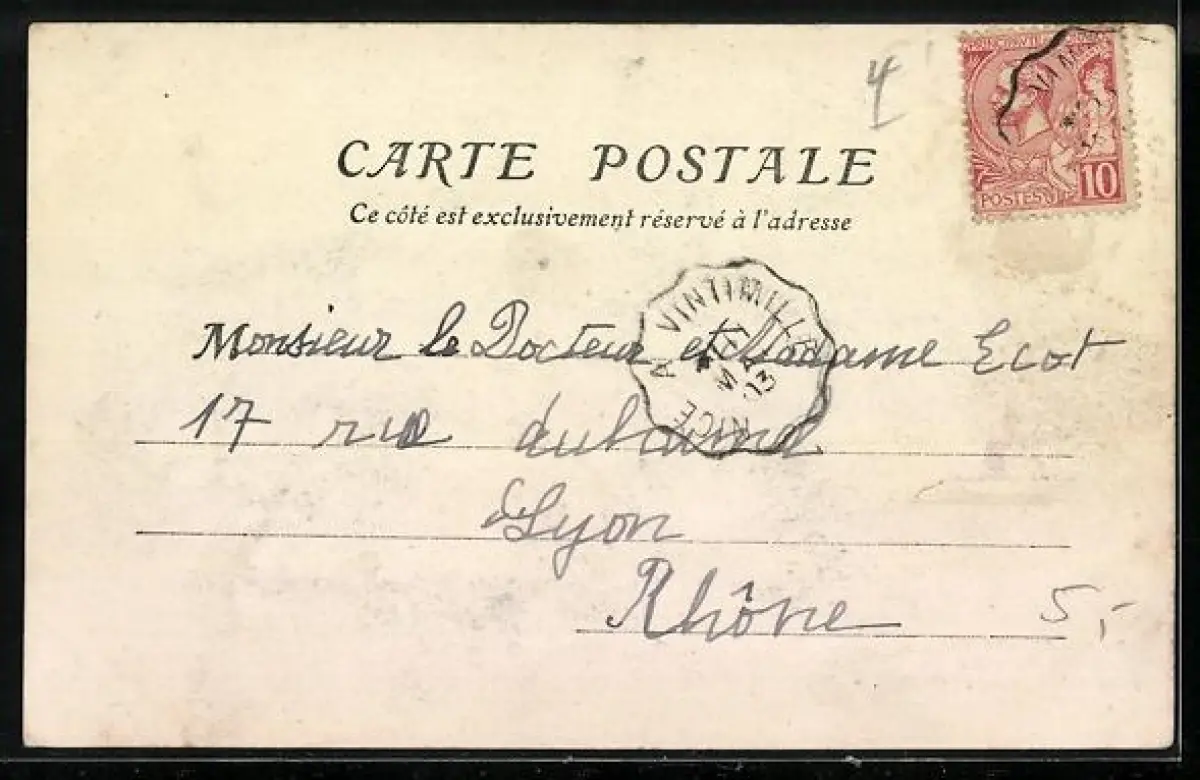 4
CARTE POSTALE
Ce côté est exclusivement réservé à l'adresse
POSTES 10
NICE A VINTIMILLE
MAI
03
Monsieur le Docteur et Madame Ecot
17 rue
à Lyon
Rhône
5,-